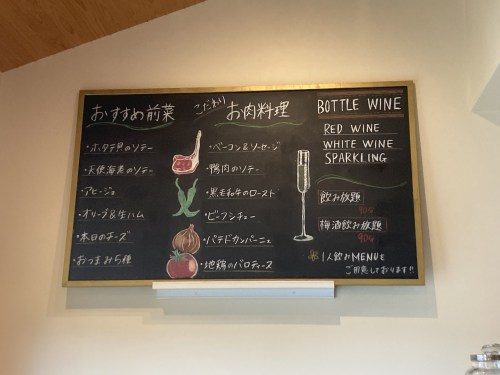 おすすめ前菜
・ホタテ貝のソテー
・天使海老のソテー
・アヒージョ
・オリーブ&生ハム
・本日のチーズ
・おつまみ5種
こだわり お肉料理
・ベーコン&ソーセージ
・鴨肉のソテー
・黒毛和牛のロースト
・ビーフシチュー
・パテドカンパーニュ
・地鶏のバロティーヌ
BOTTLE WINE
RED WINE
WHITE WINE
SPARKLING
飲み放題
90分
梅酒飲み放題
90分
1人飲みMENUを
ご用意しております!!